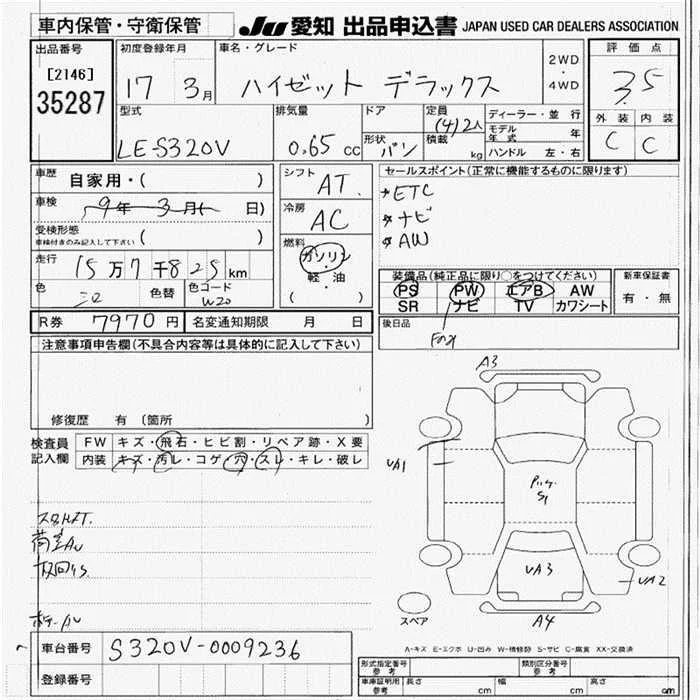 車内保管・守衛保管
JU 愛知 出品申込書 JAPAN USED CAR DEALERS ASSOCIATION
出品番号
[2146]
35287
初度登録年月
17 3月
車名・グレード
ハイゼット デラックス
2WD
・
4WD
評価点
3.5
外装 内装
C C
型式
LE-S320V
排気量
0.65 cc
ドア
形状 バン
定員
(4)2人
積載 kg
ディーラー・並行
モデル年式 年
ハンドル 左・右
車歴 自家用・( )
車検 9年 3月( 日)
受検形態
車検付きのみ記入して下さい ( )
走行 15万7千825km
色 シロ 色替 色コード W20
シフト AT.
冷房 AC
燃料 ガソリン
軽・油
( )
セールスポイント(正常に機能するものに限ります)
ETC
ナビ
AW
装備品(純正品に限り○をつけてください)
PS PW エアB AW
SR ナビ TV カワシート
新車保証書
有・無
R券 7970円 名変通知期限 月 日
後日品
注意事項申告欄(不具合内容等は具体的に記入して下さい)
修復歴 有 (箇所 )
検査員記入欄
FW キズ・飛石・ヒビ割・リペア跡・X要
内装 キズ・汚レ・コゲ・穴・スレ・キレ・破レ
A3
UA1
S1
UA3
UA2
A4
スペア
A-キズ E-エクボ U-凹み W-補修跡 S-サビ C-腐食 XX-交換済
車台番号 S320V-0009236
登録番号
形式指定番号 参考
類別区分番号 参考
車庫証明用 参考 長さ cm 幅 cm 高さ cm